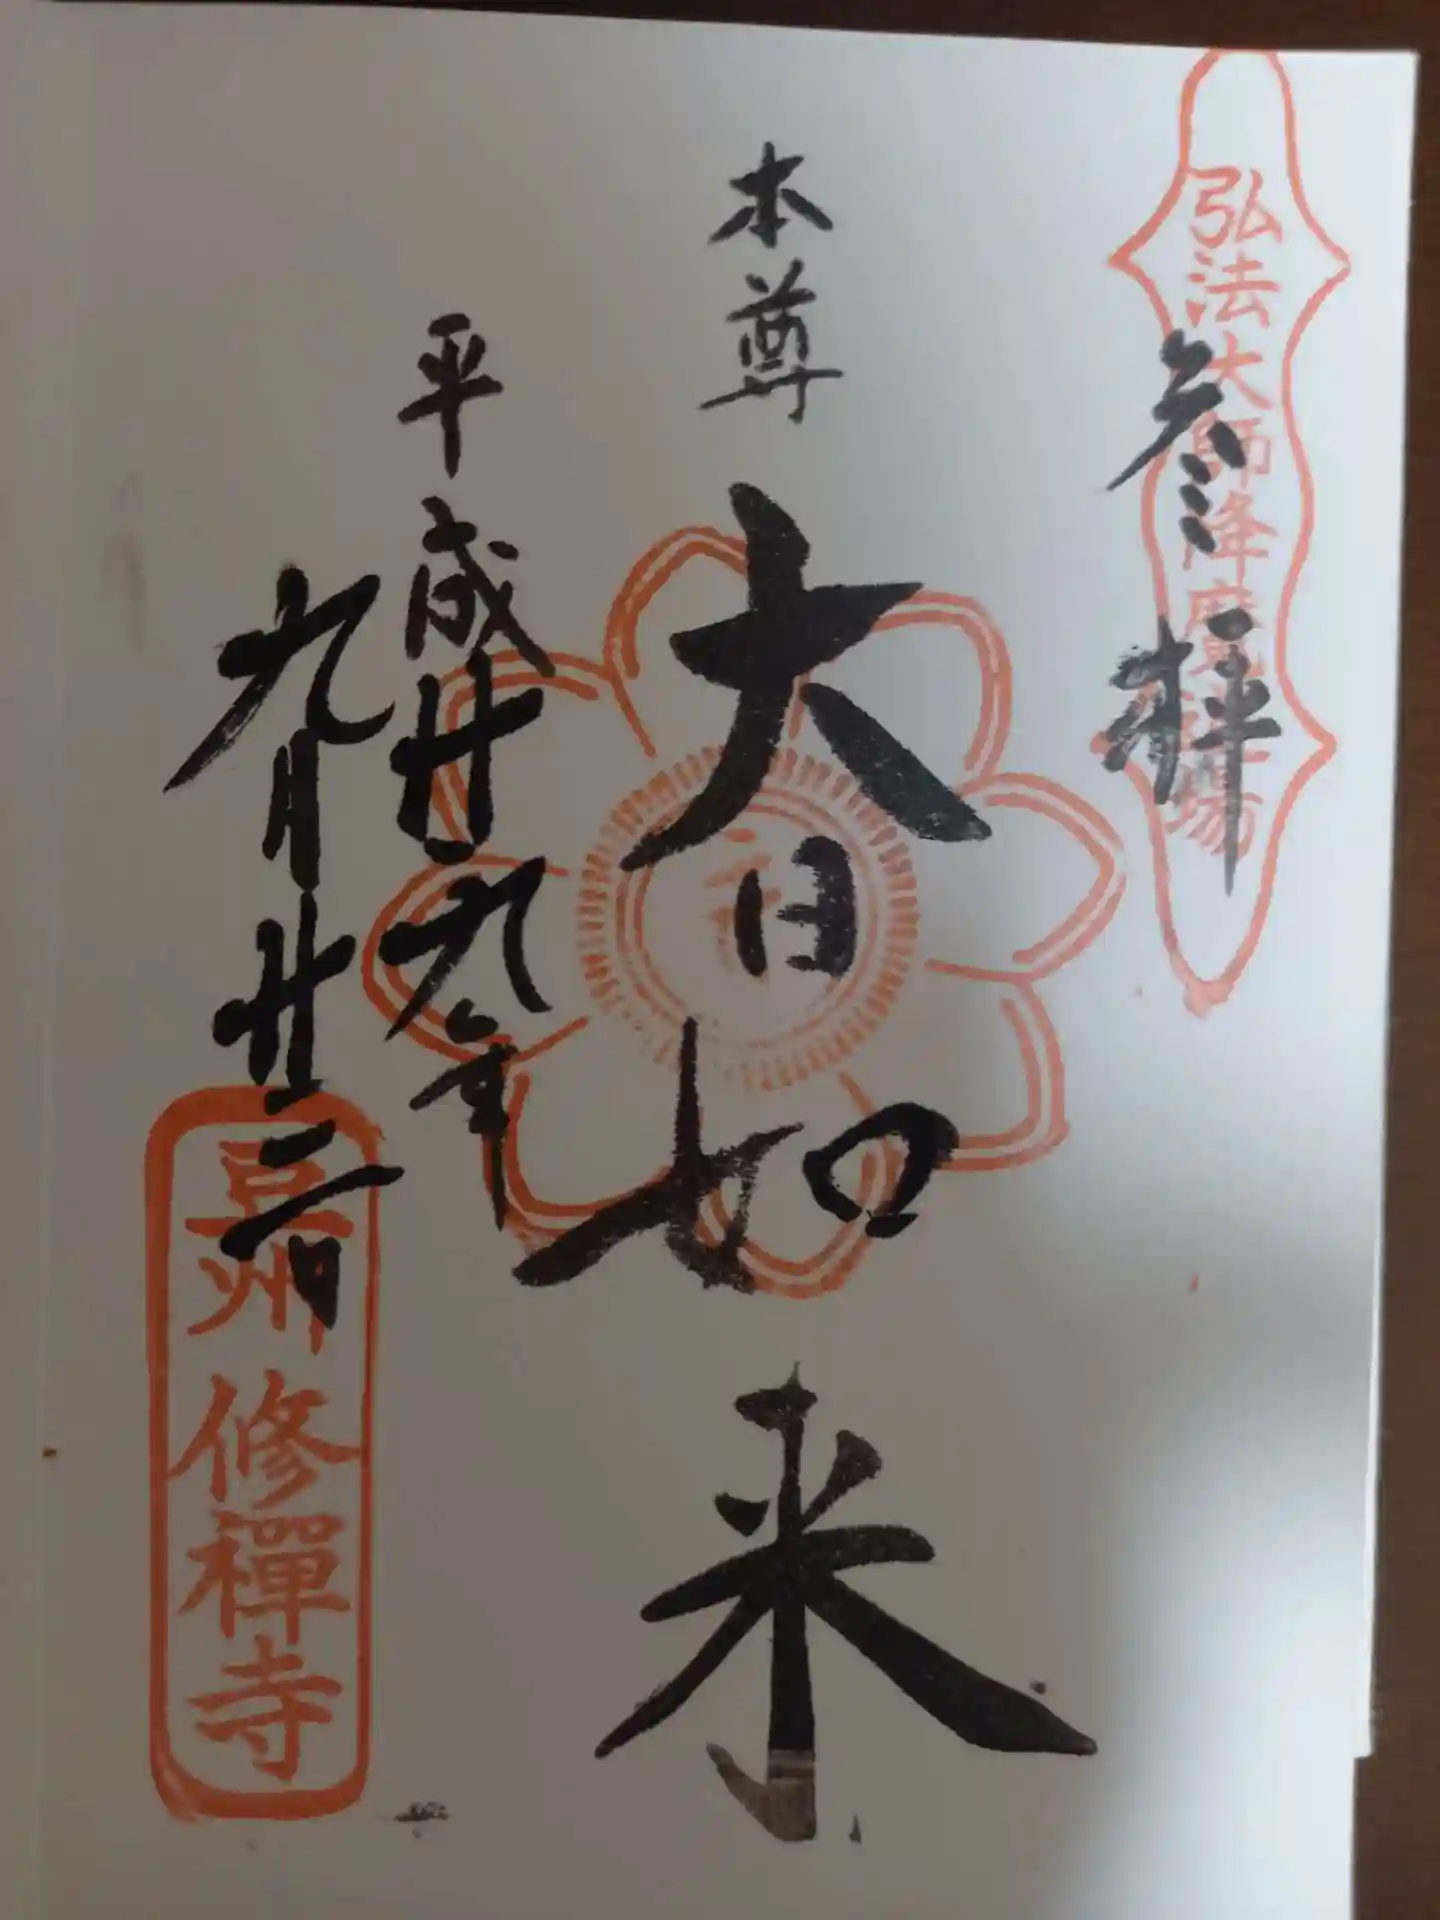 弘法大師降魔道場
参拝
本尊
大日如来
平成廿九年
九月廿二日
豆州
修禅寺